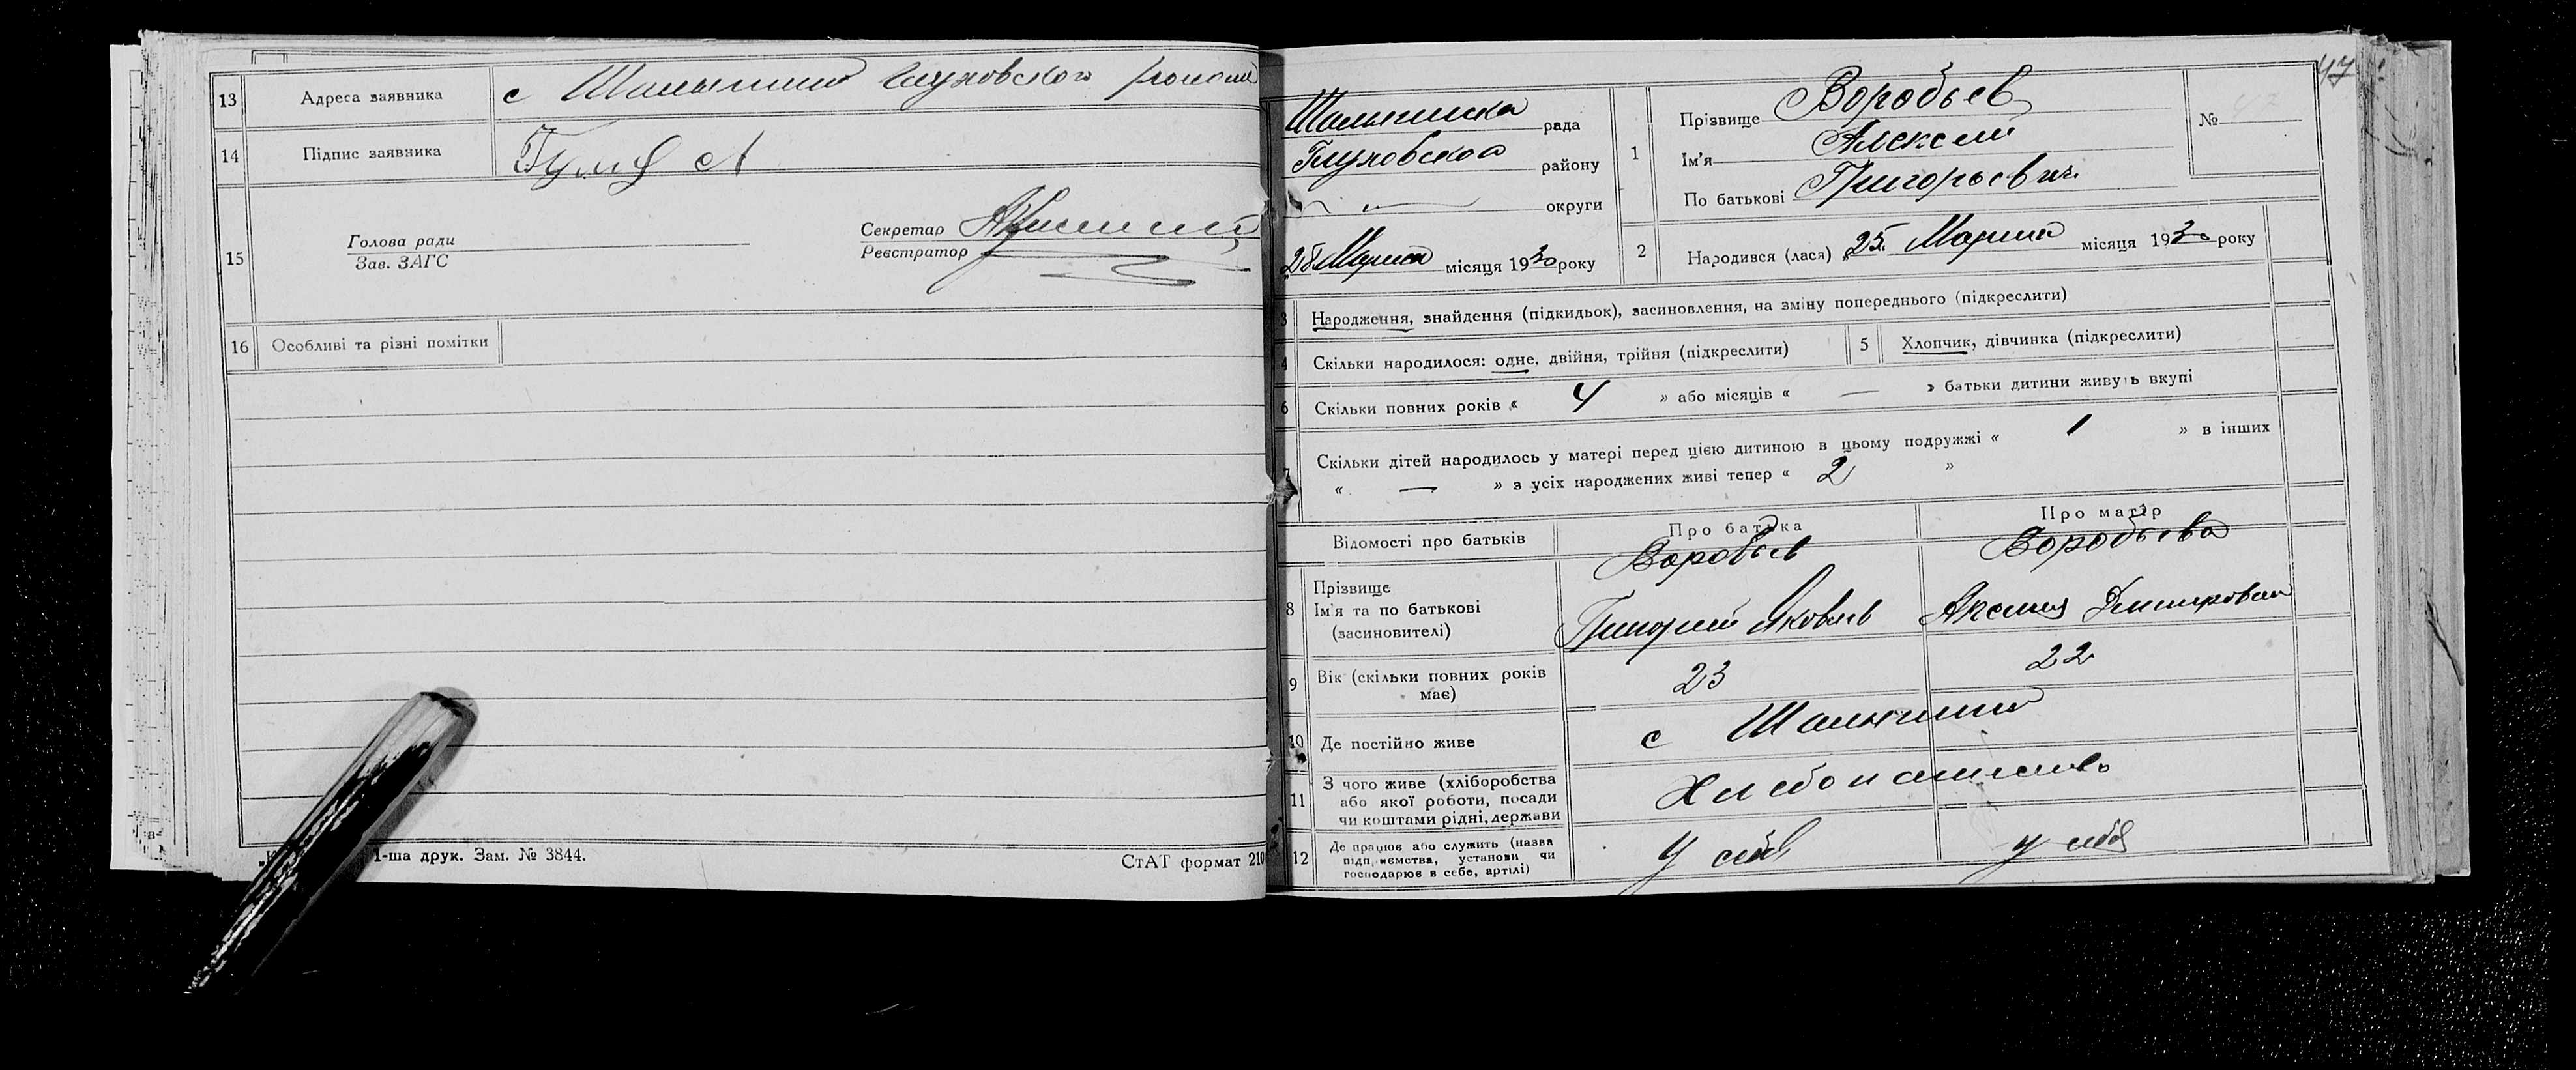 13 Адреса заявника с Шалыгино Глуховского района
14 Підпис заявника
15 Голова ради
Зав. ЗАГС
Секретар
Реєстратор
16 Особливі та різні помітки
1-ша друк. Зам. № 3844.
СтАТ формат 210
47
Шалыгинска рада
Глуховского району
округи
28 Марта місяця 1930 року
1 Прізвище Воробьев
Ім'я Алексей
По батькові Григорьевич
№
2 Народився (лася) „25" Марта місяця 1930 року
3 Народження, знайдення (підкидьок), засиновлення, на зміну попереднього (підкреслити)
4 Скільки народилося: одне, двійня, трійня (підкреслити)
5 Хлопчик, дівчинка (підкреслити)
6 Скільки повних років « 4 » або місяців « — » батьки дитини живуть вкупі
7 Скільки дітей народилось у матері перед цією дитиною в цьому подружжі « 1 » в інших
« — » з усіх народжених живі тепер « 2 »
Відомості про батьків Про батька Про матір
8 Прізвище Воробьев Воробьева
Ім'я та по батькові
(засиновителі) Григорий Яковлев Аксения Дмитровна
9 Вік (скільки повних років
має) 23 22
10 Де постійно живе с Шалыгино
11 З чого живе (хліборобства
або якої роботи, посади
чи коштами рідні, держави Хлебопашество
12 Де працює або служить (назва
підприємства, установи чи
господарює в себе, артілі) У себя у себя